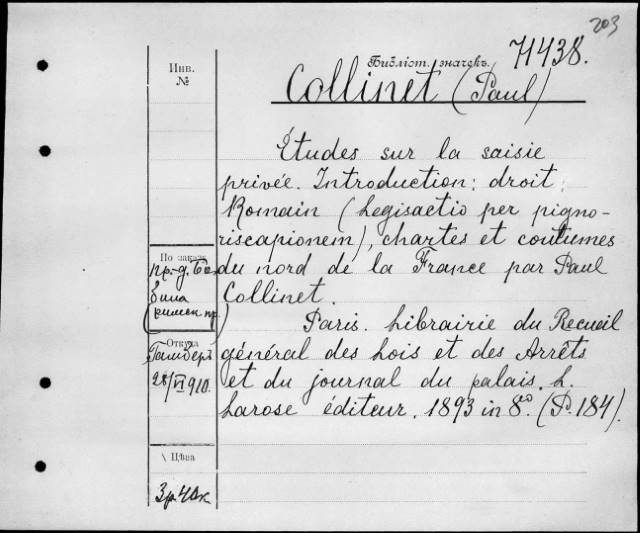 203
Библіот. значекъ. 71438.
Инв.
№
Collinet (Paul)
Études sur la saisie
privée. Introduction: droit
Romain (Legisactio per pigno-
riscapionem), chartes et coutumes
du nord de la France par Paul
Collinet.
Paris. Librairie du Recueil
général des Lois et des Arrêts
et du journal du palais. L.
Larose éditeur. 1893 in 8º. (P. 184).
По заказу
пр.-д.
Откуда
28/VI 910.
Цѣна
3р. 40к